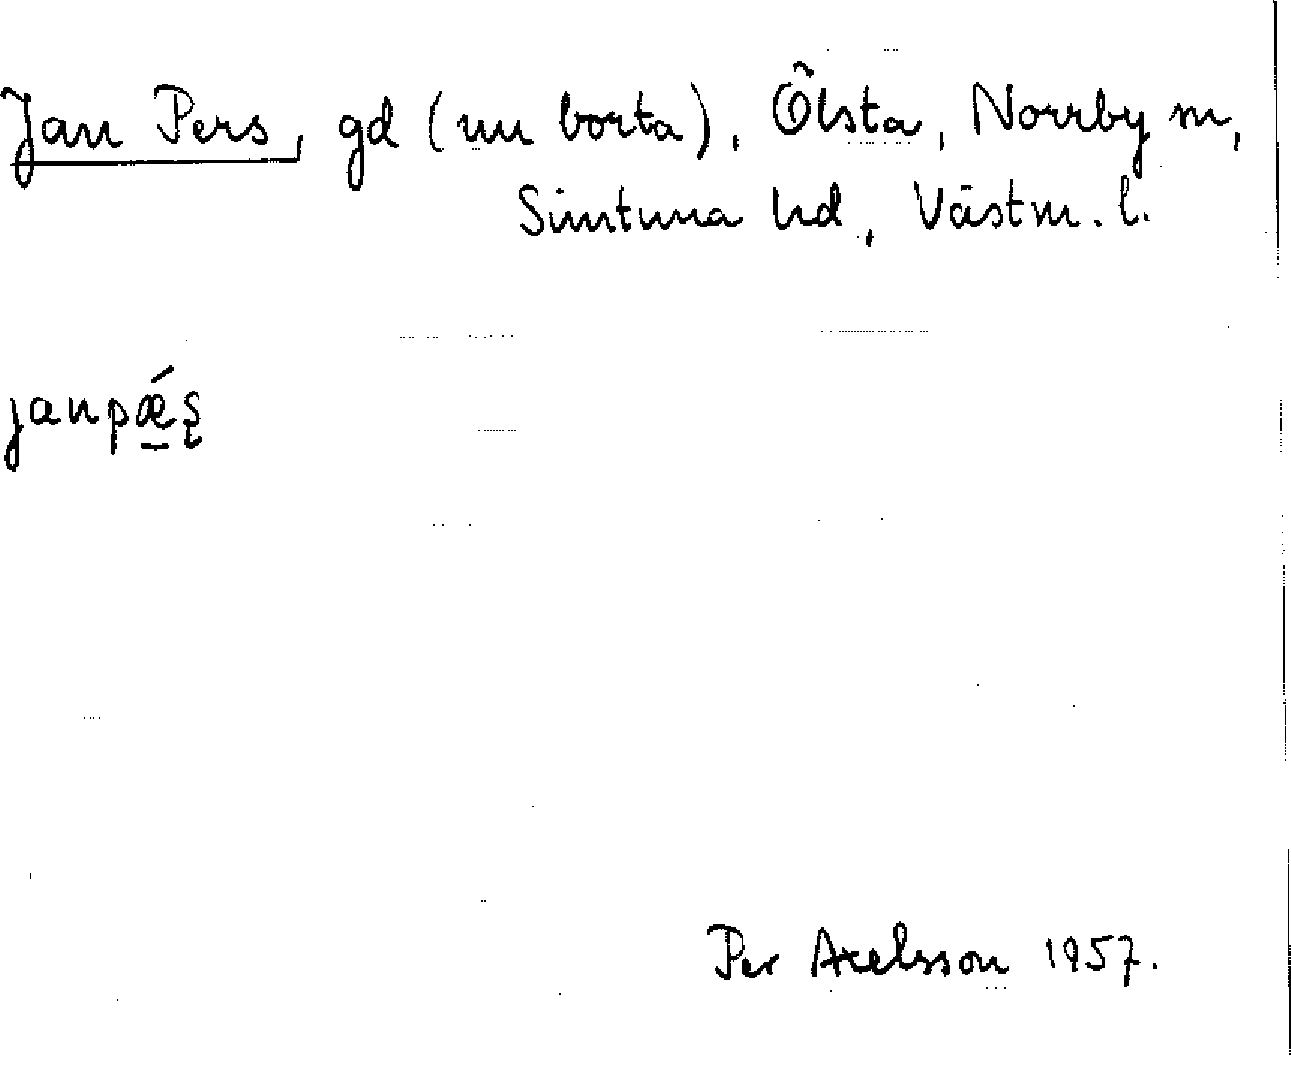 Jan Pers, gd (nu borta), Ölsta, Norrby sn,
Simtuna hd, Västm. l.
janpǽ̠ş
Per Axelsson 1957.